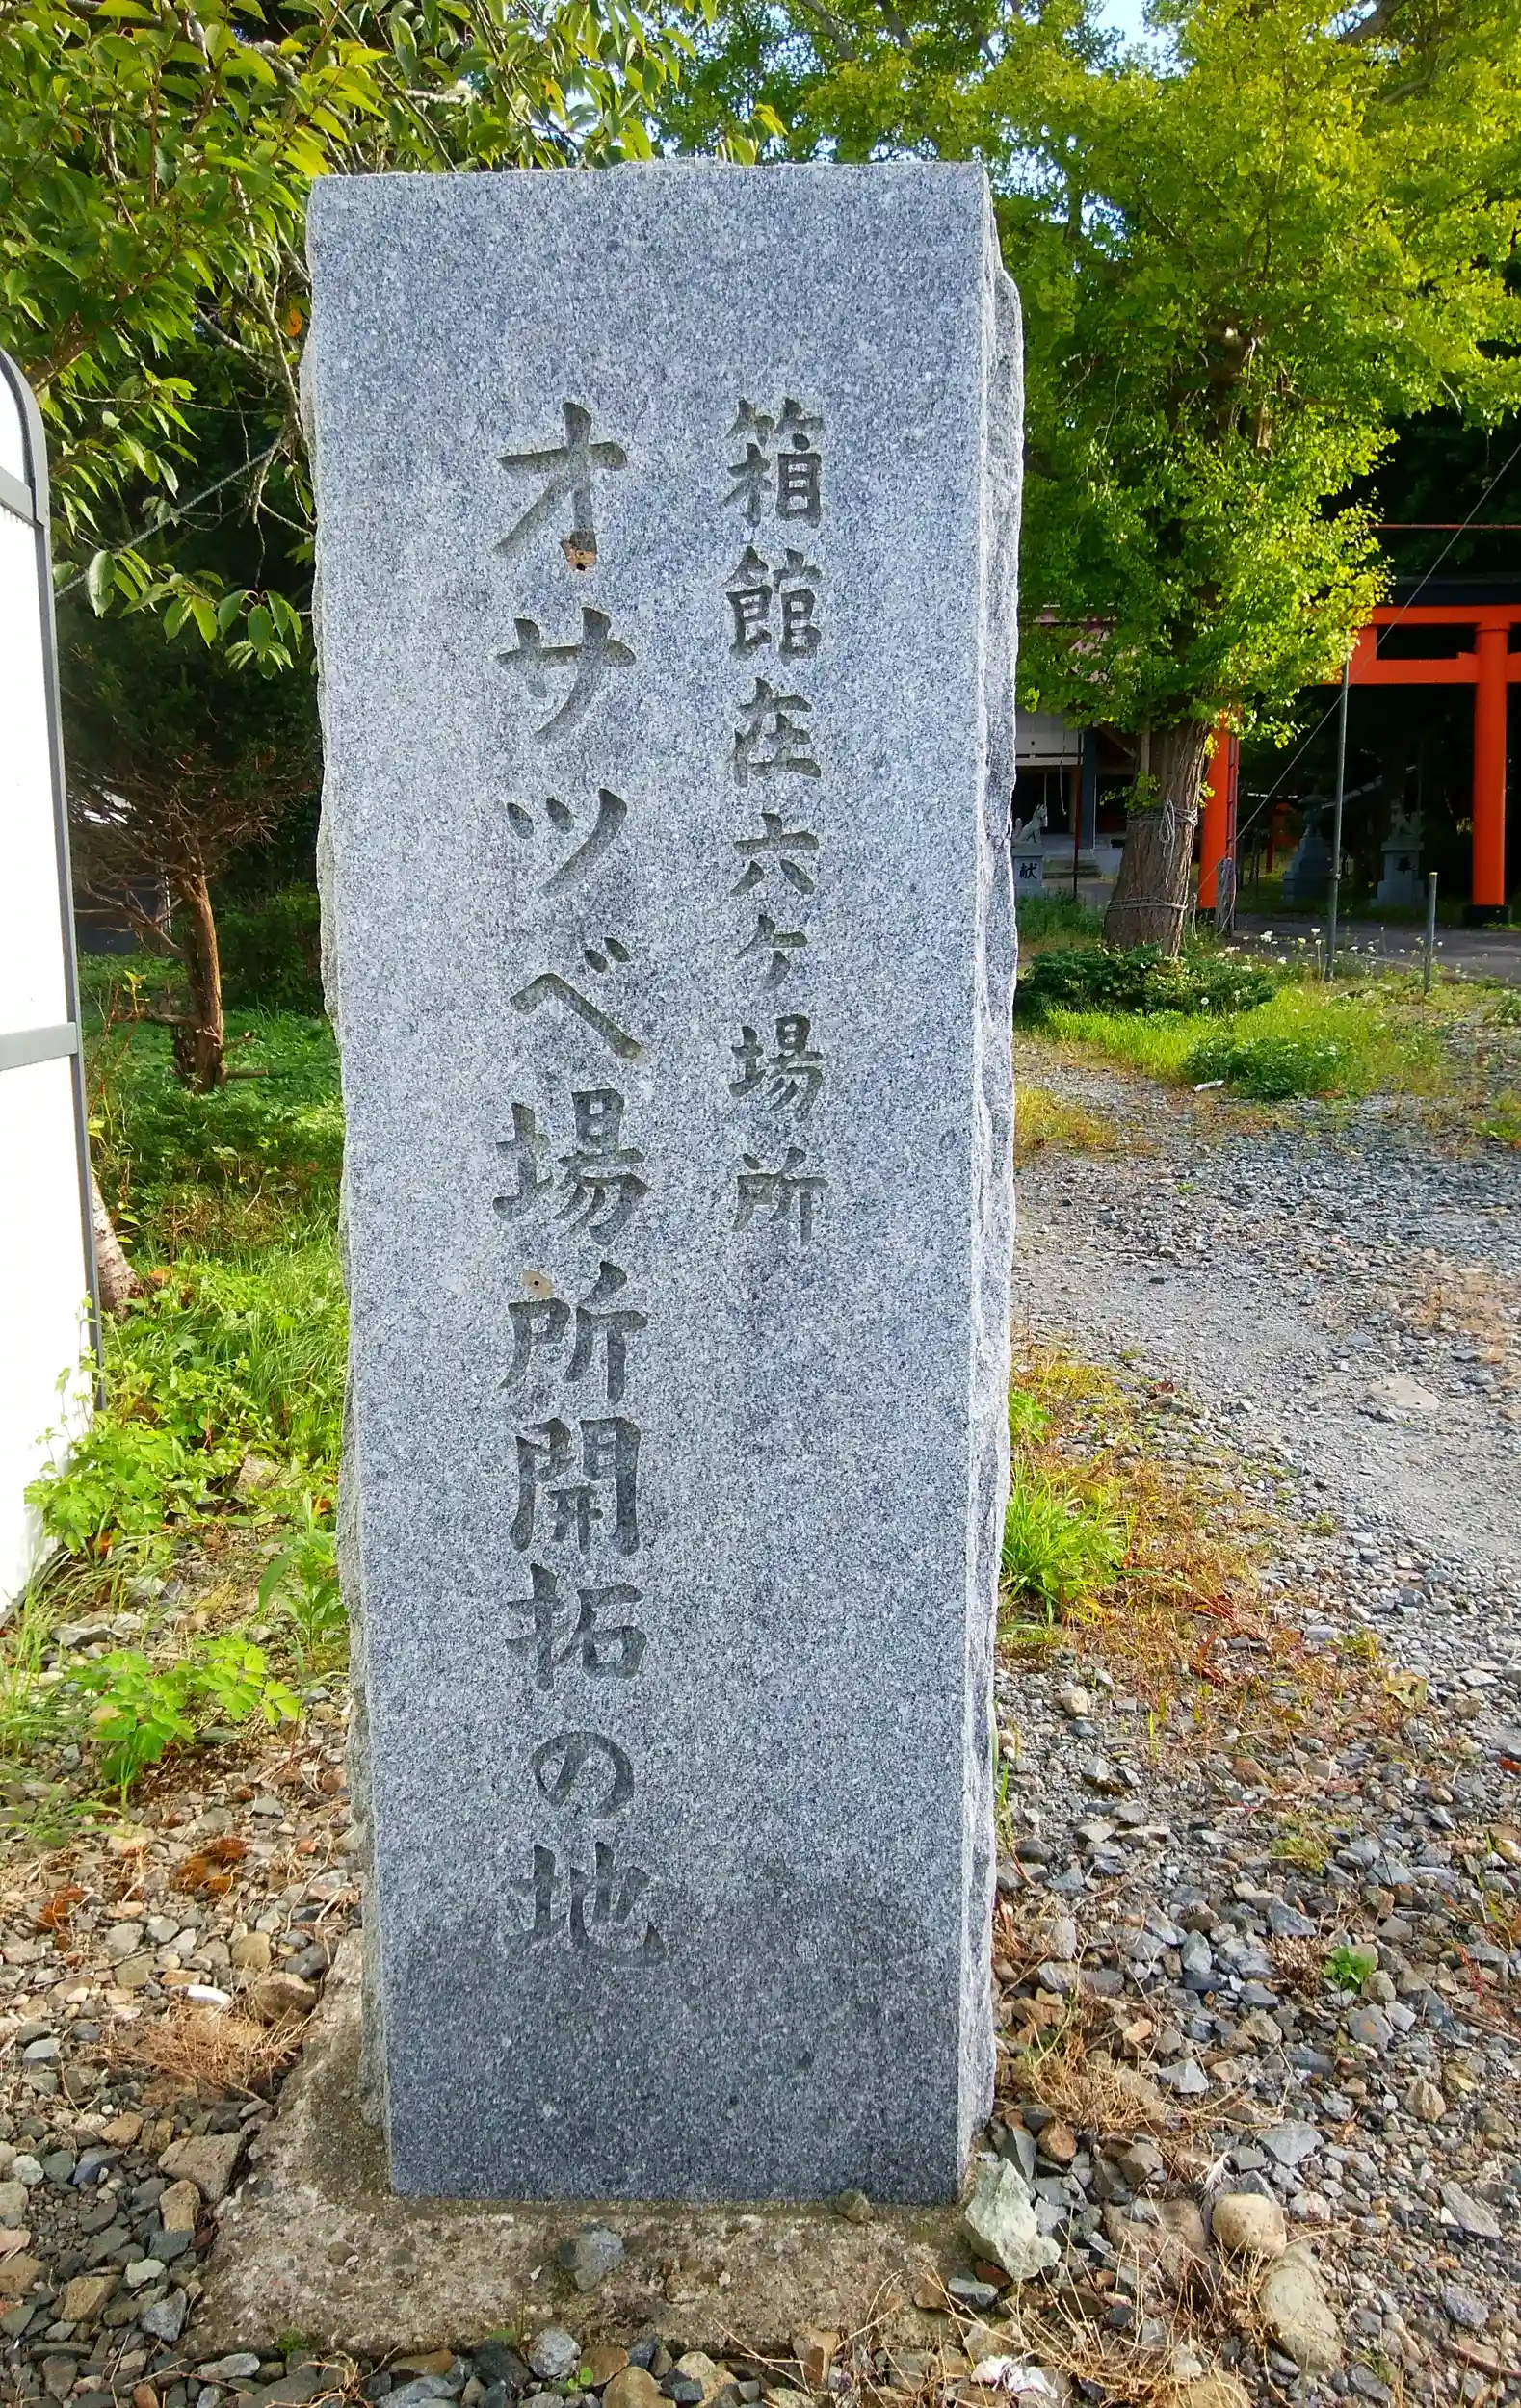 箱館在六ケ場所
オサツベ場所開拓の地
献